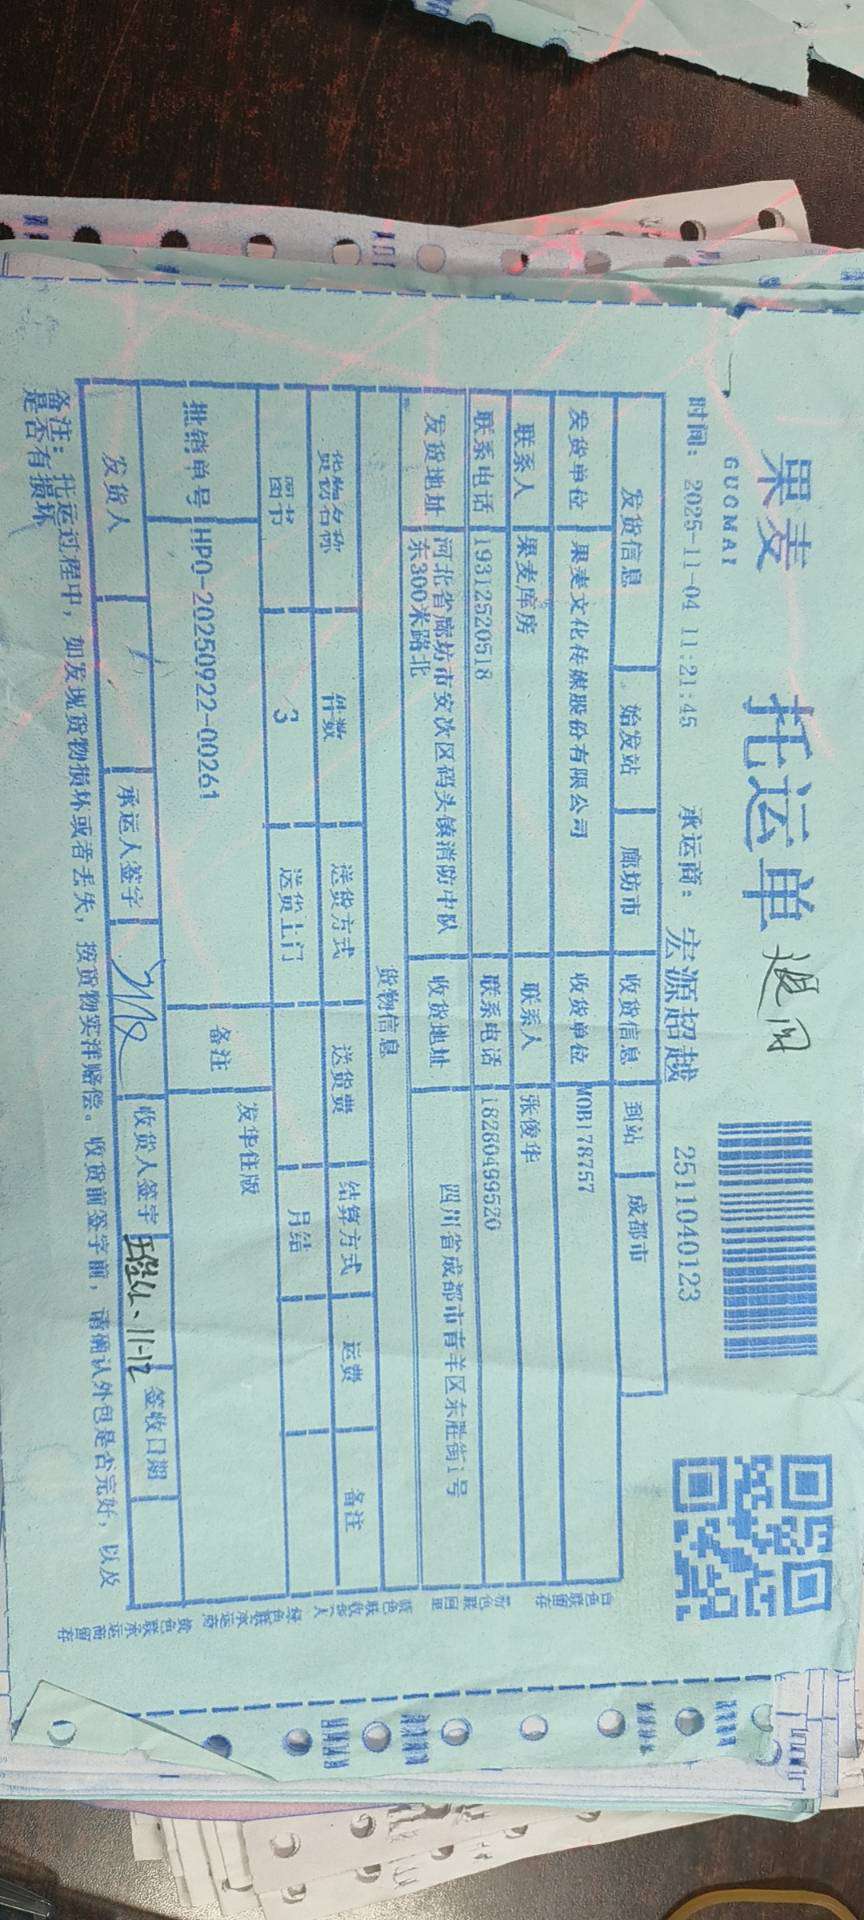 果麦
GUOMAI
托运单 退回
时间：2025-11-04 11:21:45 承运商：宏源超越 2511040123
发货信息 始发站 廊坊市 收货信息 到站 成都市
发货单位 果麦文化传媒股份有限公司 收货单位 MOB178757
联系人 果麦库房 联系人 张俊华
联系电话 19312520518 联系电话 18280499520
发货地址 河北省廊坊市安次区码头镇消防中队 收货地址 四川省成都市青羊区东胜街1号
东300米路北
货物信息
货物名称 件数 送货方式 送货费 结算方式 运费 备注
图书 3 送货上门 月结
批销单号 HPO-20250922-00261 备注 发华住版
发货人 承运人签字 收货人签字 11-12 签收日期
备注：托运过程中，如发现货物损坏或者丢失，按货物实洋赔偿。收货前签字前，请确认外包是否完好，以及
是否有损坏